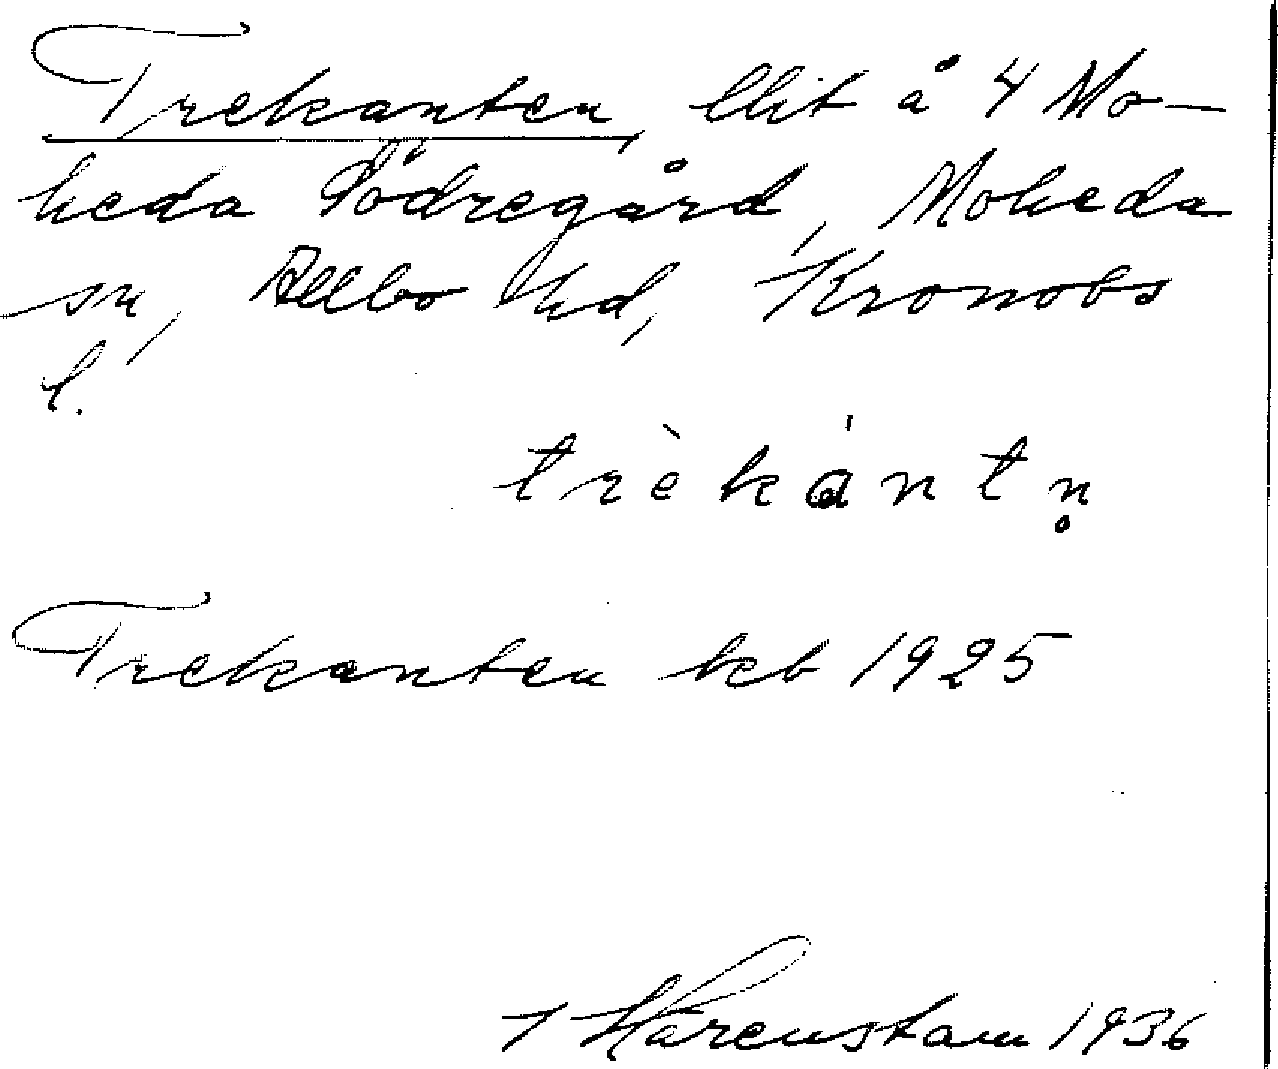 Trekanten, lht å 4 Mo-
heda Södregård, Moheda
sn, Allbo hd, Kronobs
l.
trèkántn̥
Trekanten kb 1925
T Härenstam 1936